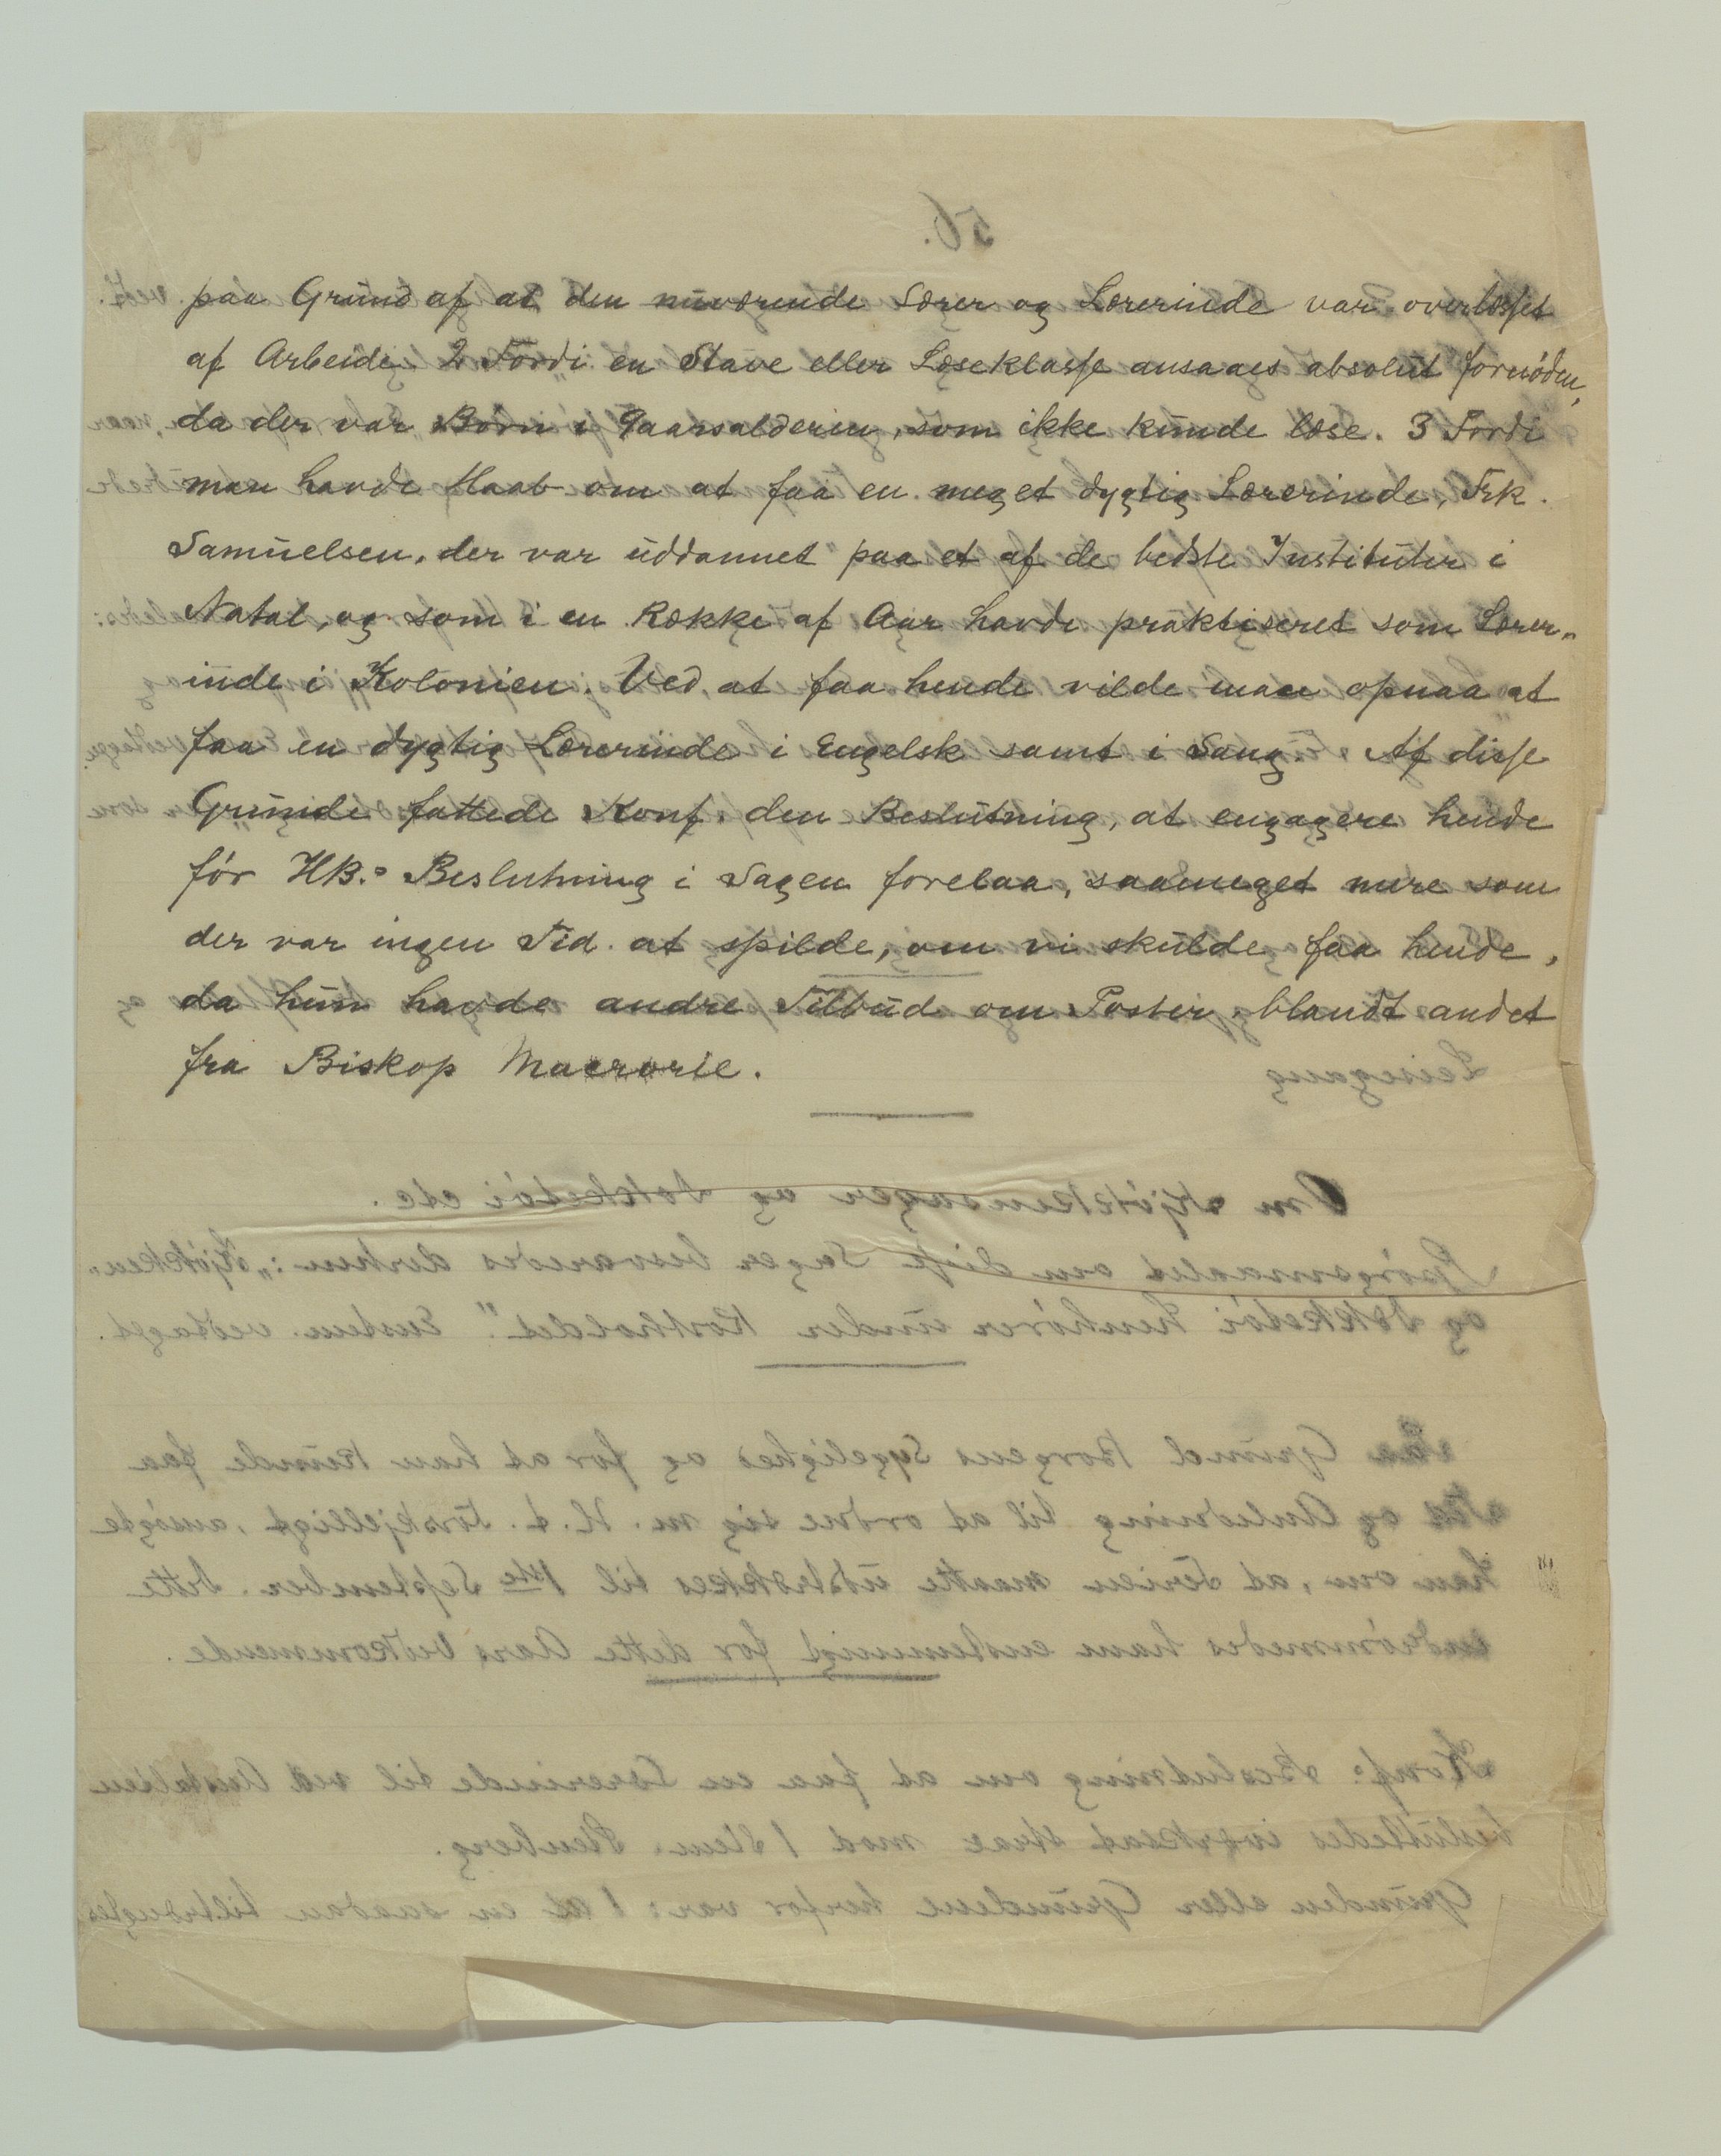 paa Grund af at den nuværende Lærer og Lærerinde var overlæsset
af Arbeide. 2 Fordi en Stave eller Læseklasse ansaaes absolut fornøden,
da der var Børn i 9aarsalderen, som ikke kunde læse. 3 Fordi
man havde Haab om at faa en meget dygtig Lærerinde, Frk.
Samuelsen, der var uddannet paa et af de bedste Instituter i
Natal, og som i en Række af Aar havde praktiseret som Lærer„
inde i Kolonien. Ved at faa hende vilde man opnaa at
faa en dygtig Lærerinde i Engelsk samt i Sang. Af disse
Grunde fattede Konf. den Beslutning, at engagere hende
før HB.s Beslutning i Sagen forelaa, saameget mere som
der var ingen Tid at spilde, om vi skulde faa hende,
da hun havde andre Tilbud om Poster, blandt andet
fra Biskop Macrorie.